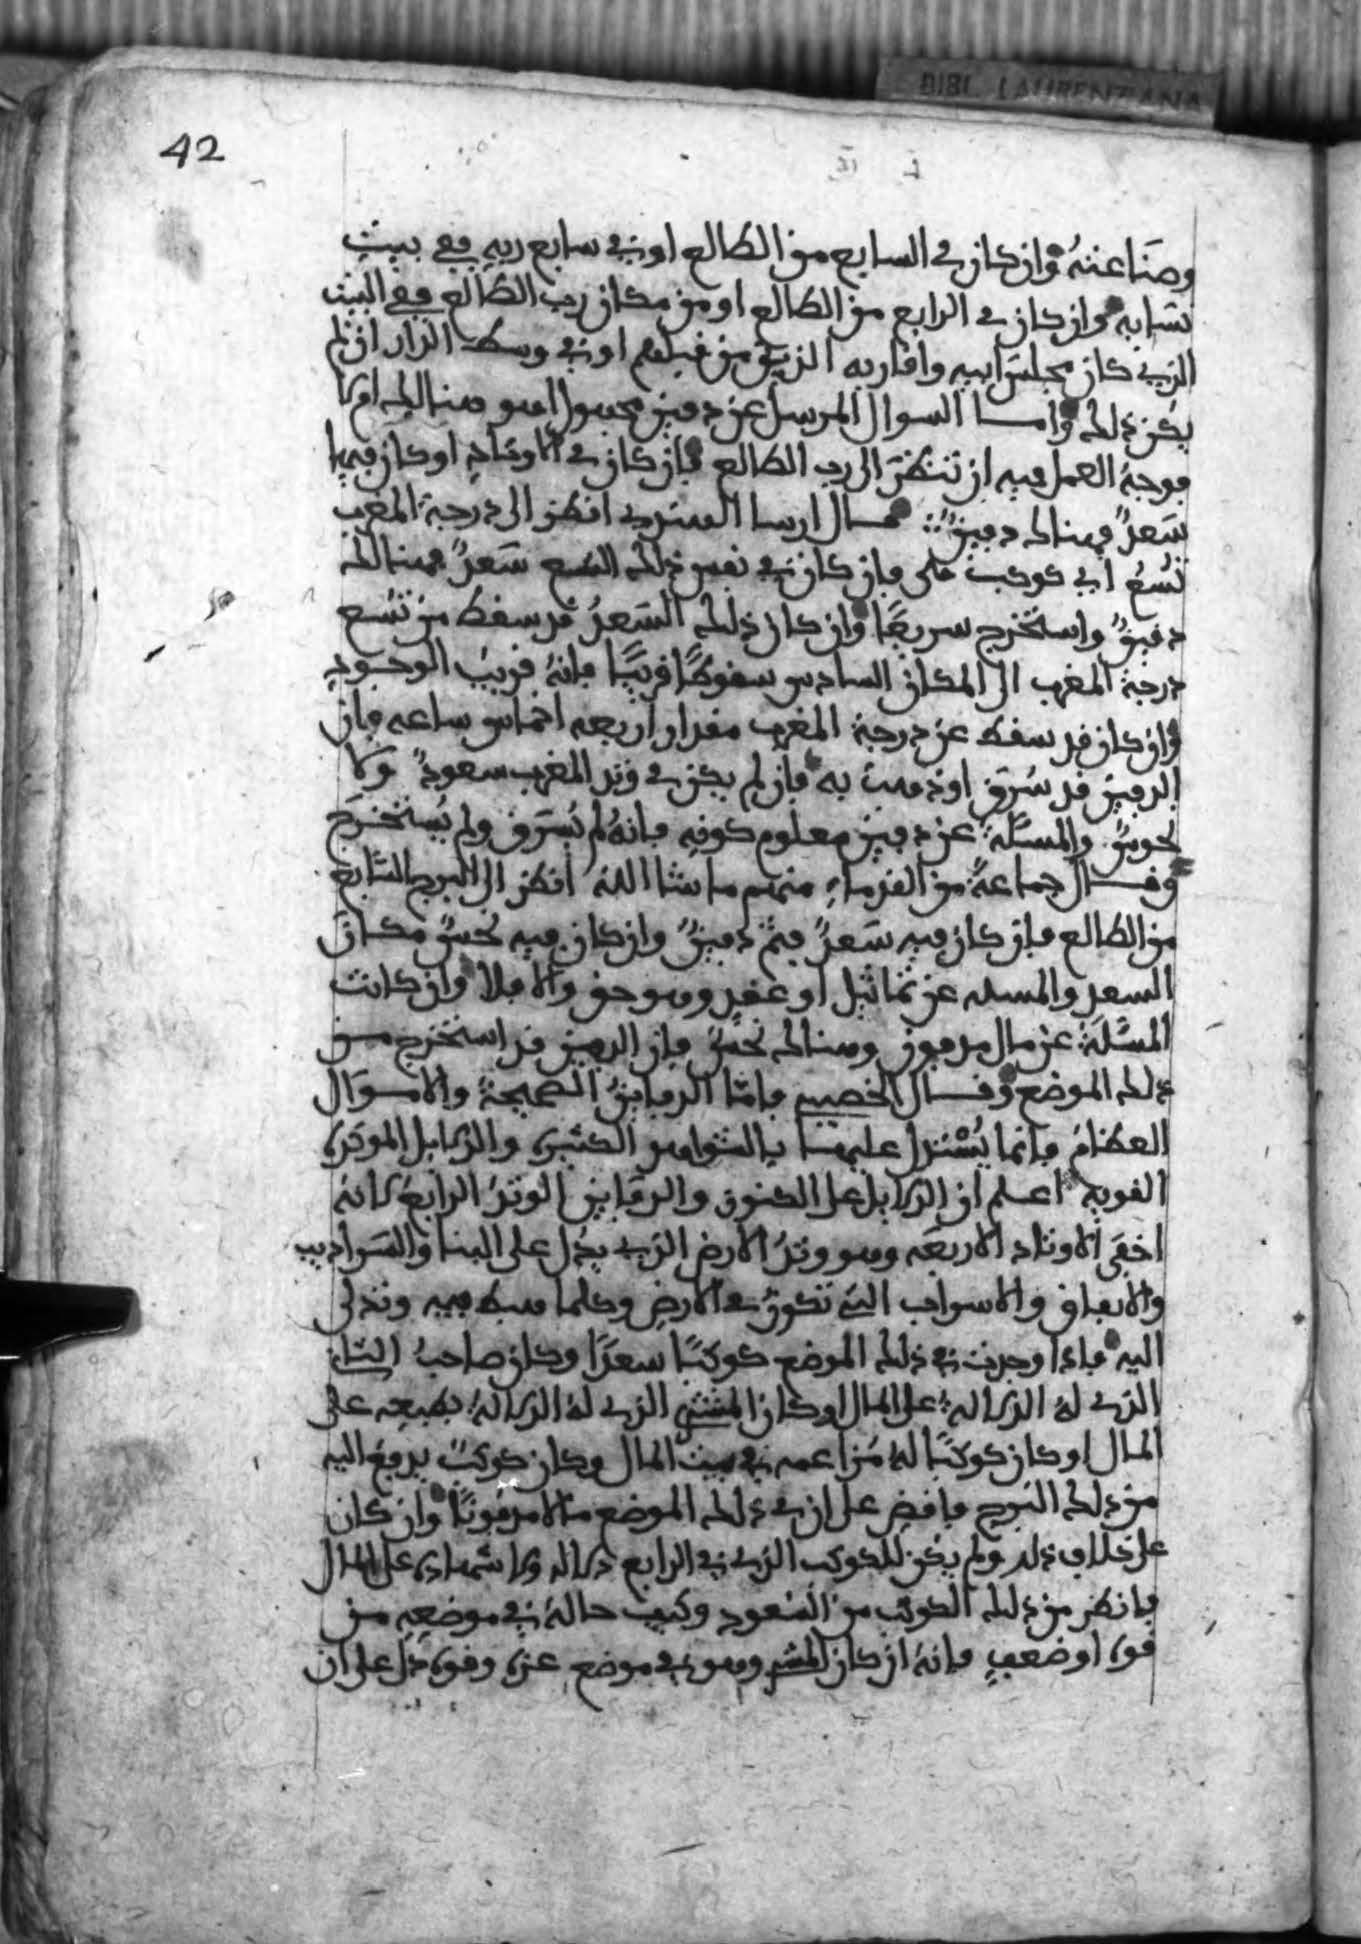 BIBL. LAURENZIANA
42
وصناعته وان كان في السابع من الطالع او في سابع ربه ففي بيت
نسايه وان كان في الرابع من الطالع او من مكان رب الطالع ففي البيت
الذي كان مجلس ابيه واقاربه الذين من قبلهم او في وسط الدار ان لم
يكن ذلك واما السوال المرسل عن دفين مجهول اهو هنالك ام لا
فوجه العمل فيه ان تنظر الى رب الطالع فان كان في الاوتاد او كان فيها
سعدٌ فهنالك دفينٌ قال ارسا الهندي انظر الى درجة المغرب
تسع اي كوكب هي فان كان في نفس ذلك التسع سعدٌ فهنالك
دفينٌ واستخرج سريعًا وان كان ذلك السعد قد سقط من تسع
درجة المغرب الى المكان السادس سقوطًا قريبًا فانه قريب الوجود
وان كان قد سقط عن درجة المغرب مقدار اربعه اخماس ساعه فان
الدفين قد سرق او ذهب به فان لم يكن في وتد المغرب سعودٌ ولا
نحوسٌ والمسئلة عن دفين معلوم كونه فانه لم يسرق ولم يستخرج
وقال جماعة من القدماء منهم ما شا الله انظر الى البرج السابع
من الطالع فان كان فيه سعدٌ فثم دفينٌ وان كان فيه نحسٌ مكان
السعد والمسله عن تماثيل او عقد وهو حق والا فلا وان كانت
المسئلة عن مال مدفون وهنالك نحسٌ فان الدفين قد استخرج من
ذلك الموضع وقال الخصيب فاما الدفاين الصحيحة والاموال
العظام فانما يستدل عليها بالشواهد الكثيرة والدلايل الموكدة
القويه اعلم ان الدلايل على الكنوز والدفاين الوتد الرابع لانه
اخفى الاوتاد الاربعه وهو وتد الارض الذي يدل على البنا والسراديب
والانفاق والاسراب التي تكون في الارض وكلما هبط فيه وتدلى
اليه فاذا وجدت في ذلك الموضع كوكبًا سعدًا وكان صاحب الثاني
الذي له الدلالة على المال او كان المشتري الذي له الدلالة بطبعه على
المال او كان كوكبًا له مزاعمه في بيت المال وكان كوكبٌ يدفع اليه
من ذلك البرج فاقض على ان في ذلك الموضع مالا مدفونًا وان كان
على خلاف ذلك ولم يكن للكوكب الذي في الرابع دلاله ولا شهاده على المال
فانظر من ذلك الكوكب من السعود وكيف حاله في موضعه من
قوة او ضعف فانه ان كان المشتري وهو في موضع عز وقوة دل على ان